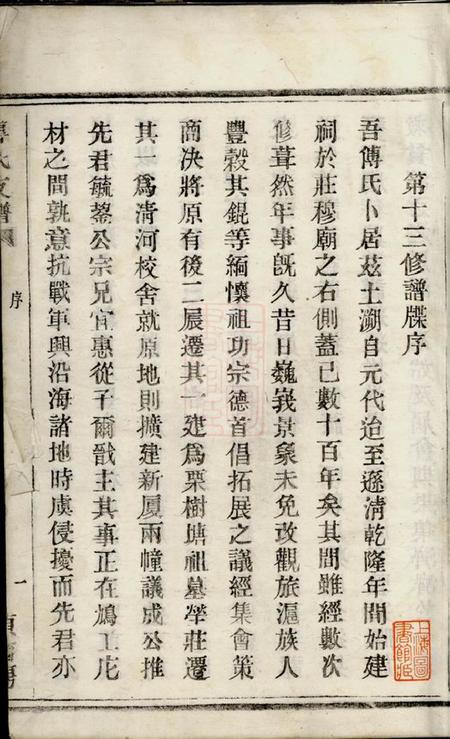 第十三修譜牒序
吾傅氏卜居茲土溯自元代迨至遜清乾隆年間始建
祠於莊穆廟之右側蓋已數十百年矣其間雖經數次
修葺然年事既久昔日巍峩景象未免改觀旅滬族人
豐穀其錕等緬懷祖功宗德首倡拓展之議經集會策
商決將原有後二展遷其一建爲栗樹塘祖墓塋莊遷
其一爲清河校舍就原地則擴建新厦兩幢議成公推
先君毓蓥公宗兄宜惠從子爾戩主其事正在鳩工庀
材之間孰意抗戰軍興沿海諸地時虞侵擾而先君亦
氏支譜
序
一
上海圖書館藏